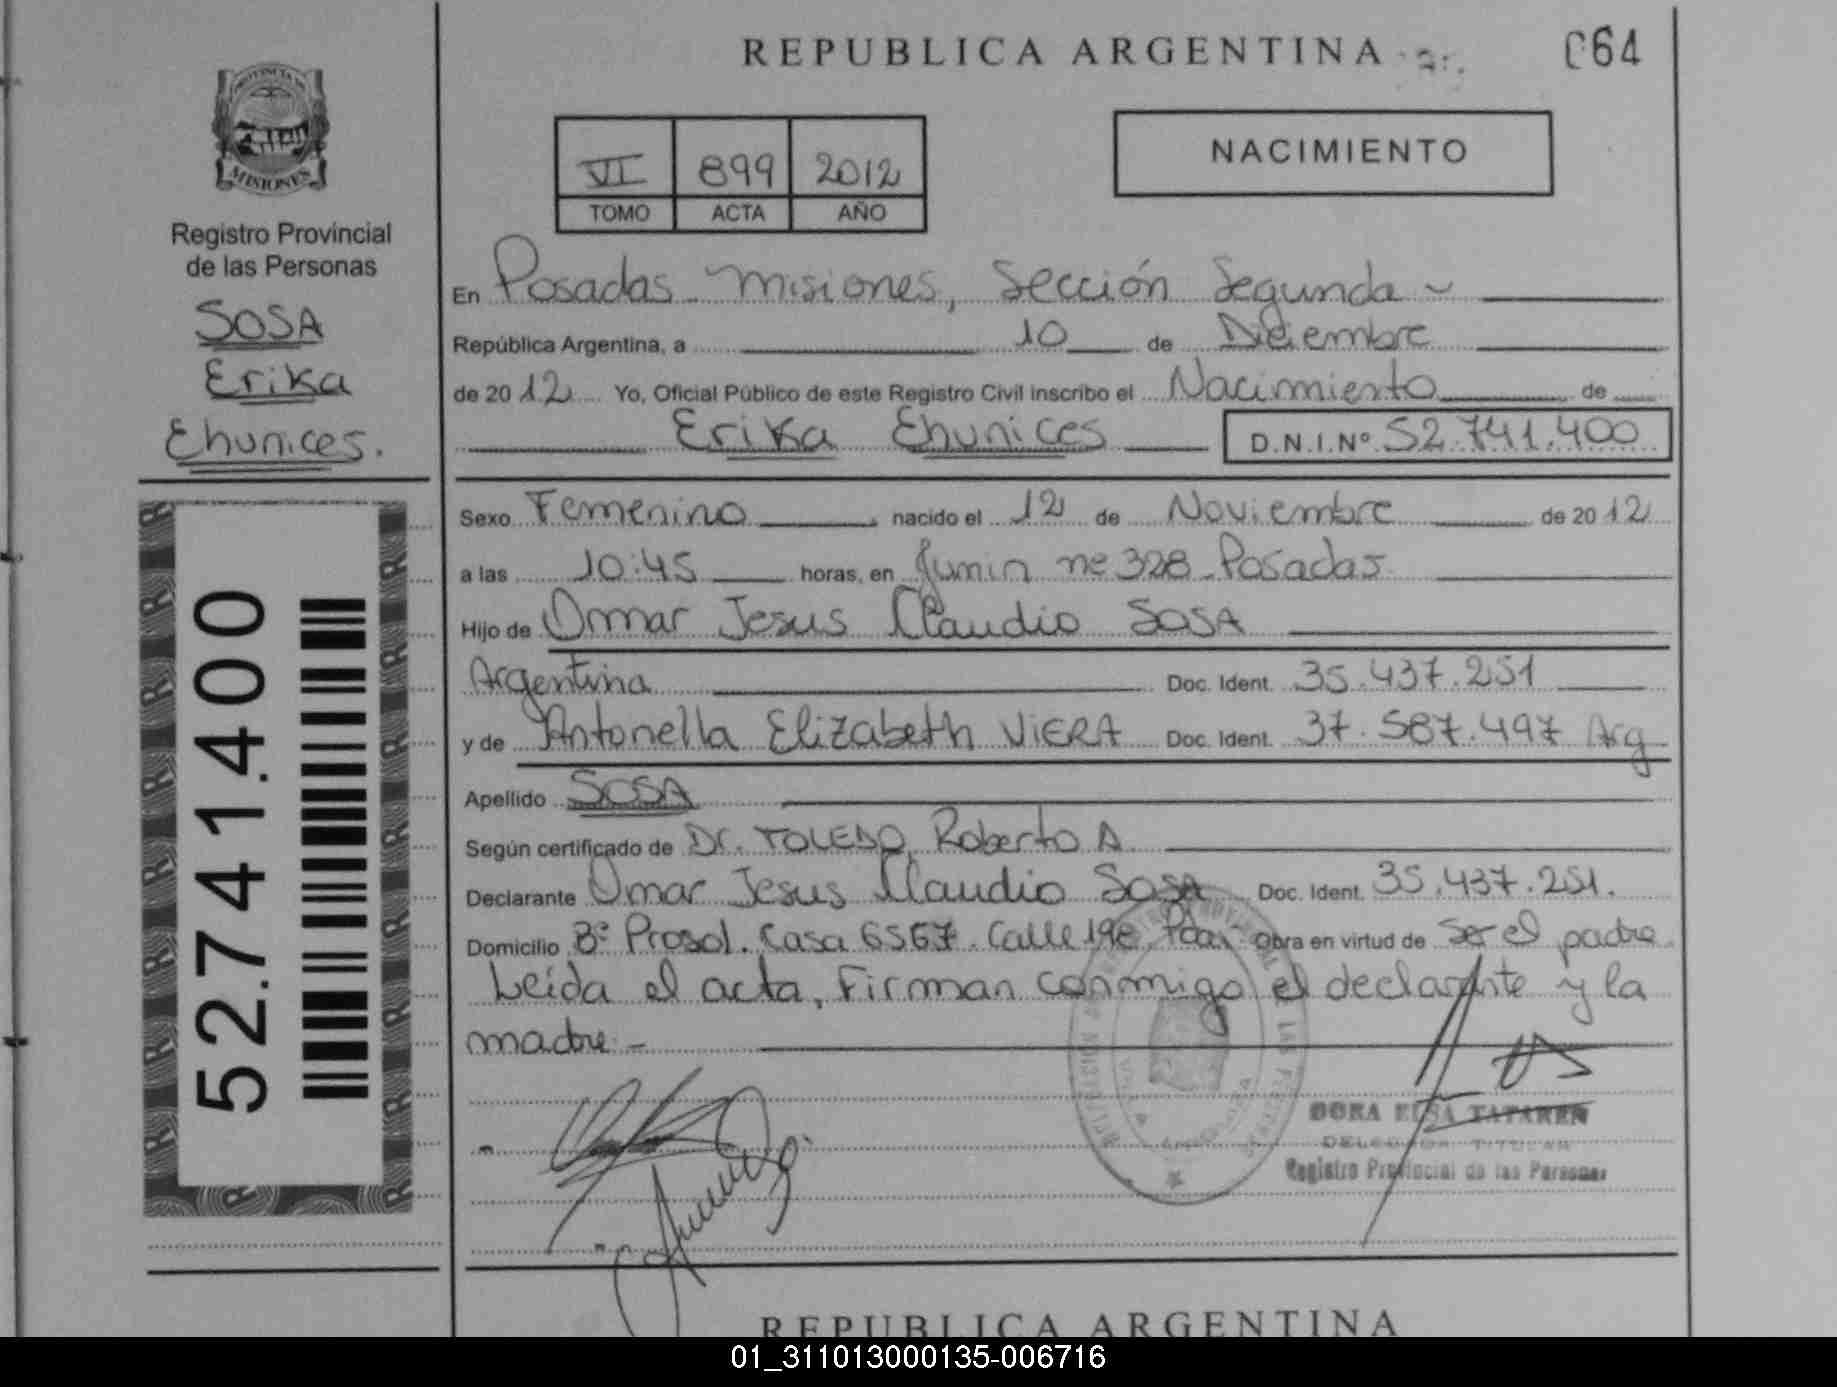 REPUBLICA ARGENTINA
064
PROVINCIA DE
MISIONES
Registro Provincial
de las Personas
SOSA
Erika
Ehunices.
52.741.400
VI 899 2012
TOMO ACTA AÑO
NACIMIENTO
En Posadas Misiones, Sección Segunda
República Argentina, a 10 de Diciembre
de 2012 Yo, Oficial Público de este Registro Civil inscribo el Nacimiento de
Erika Ehunices D.N.I.Nº 52.741.400
Sexo Femenino nacido el 12 de Noviembre de 2012
a las 10:45 horas, en Junin nº 328 Posadas
Hijo de Omar Jesus Claudio SOSA
Argentina Doc. Ident. 35.437.251
y de Antonella Elizabeth VIERA Doc. Ident. 37.587.497 Arg
Apellido SOSA
Según certificado de Dr. TOLEDO, Roberto A
Declarante Omar Jesus Claudio Sosa Doc. Ident. 35.437.251.
Domicilio Bº Prosol. Casa 6567. Calle 198 Pdas. Obra en virtud de Ser el padre
Leída el acta, Firman conmigo el declarante y la
madre -
DORA ELSA
DELEGADA TITULAR
Registro Provincial de las Personas
REPUBLICA ARGENTINA
01_311013000135-006716